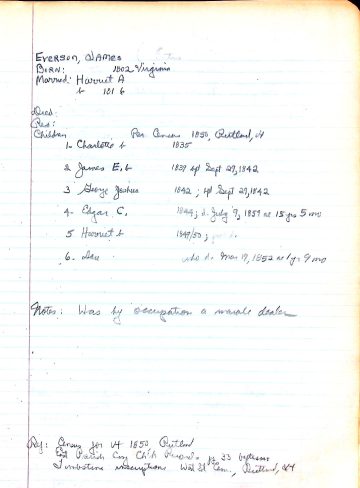 Everson, James
Born: 1802 Virginia
Married: Harriet A
b 181 6
Died:
Res:
Children Per Census 1850, Rutland, Vt
1. Charlotte b 1835
2 James E. b 1839 bpt Sept 27, 1842
3 George Joshua 1842; bpt Sept 27, 1842
4- Edgar C. 1844; d. July 9, 1859 ae 15 yrs 5 mo
5 Harriet b 1849/50;
6. who d. Mar 17, 1852 ae 1 yr 9 mo
Notes: Was by occupation a marble dealer
Ref: Census for Vt 1850 Rutland
Parish Cong Ch'h Records pg 33 baptisms
Tombstone inscriptions West St Cem., Rutland, Vt